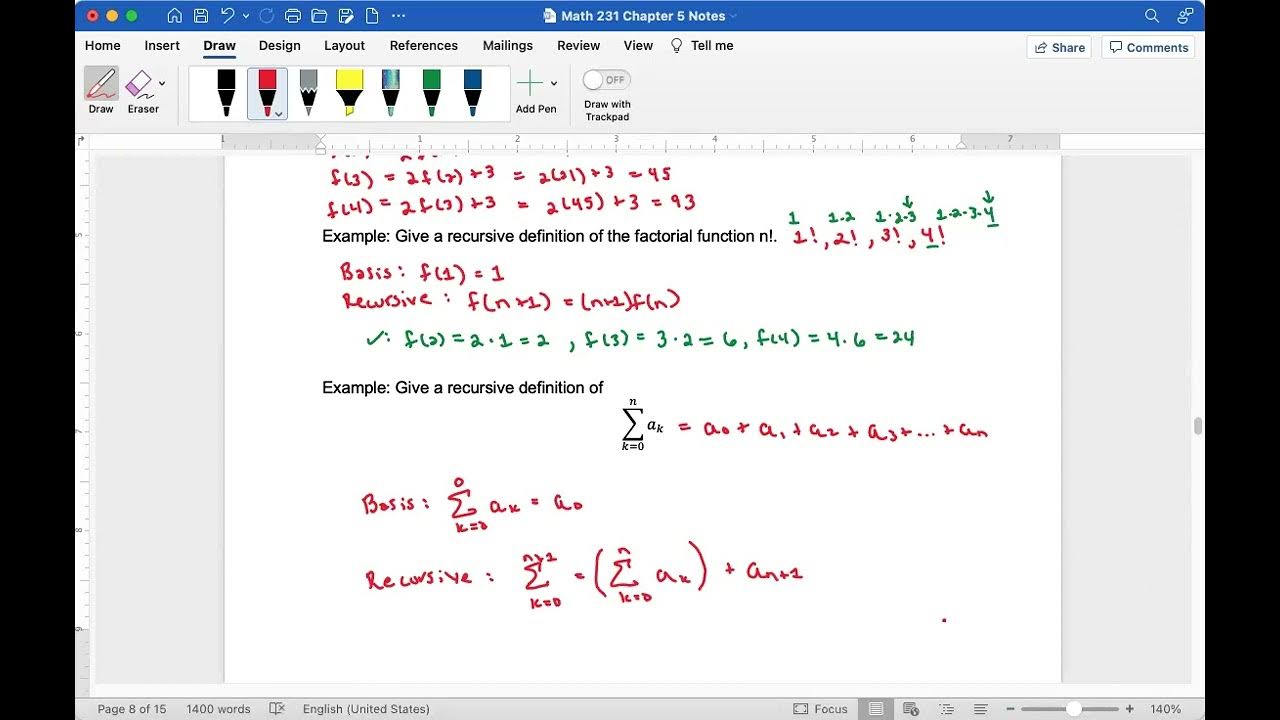 Math 231 Chapter 5 Notes
Home Insert Draw Design Layout References Mailings Review View Tell me Share Comments
Draw Eraser Add Pen OFF Draw with Trackpad
1 1 2 3 4 5 6 7
f(3) = 2f(2)+3 = 2(21)+3 = 45
f(4) = 2f(3)+3 = 2(45)+3 = 93
1 1·2 1·2·3 1·2·3·4
Example: Give a recursive definition of the factorial function n!. 1!, 2!, 3!, 4!
Basis: f(1) = 1
Recursive: f(n+1) = (n+1)f(n)
✓: f(2) = 2·1 = 2, f(3) = 3·2 = 6, f(4) = 4·6 = 24
Example: Give a recursive definition of
∑_{k=0}^{n} a_k = a_0 + a_1 + a_2 + a_3 + ... + a_n
Basis: ∑_{k=0}^{0} a_k = a_0
Recursive: ∑_{k=0}^{n+1} = (∑_{k=0}^{n} a_k) + a_{n+1}
Page 8 of 15 1400 words English (United States) Focus 140%